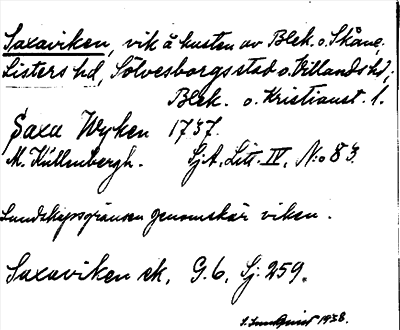 Saxaviken, vik å kusten av Blek. o. Skåne,
Listers hd, Sölvesborgs stad o. Villands hd,
Blek. o. Kristianst. l.
Saxa Wyken 1737.
M. Kullenbergh. SjA. Litt. IV. N:o 83.
Landskapsgränsen genomskär viken.
Saxaviken ek. G. 6, Sj: 259.
S. Sundquist 1938.